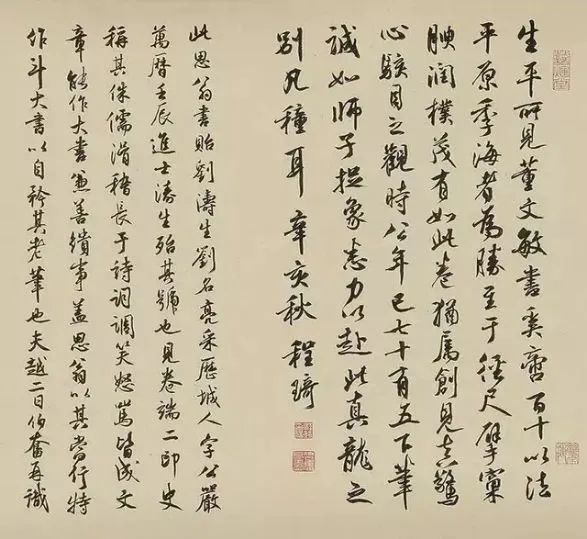 生平所見董文敏書奚啻百十以法
平原季海者為勝至于徑尺擘窠
腴潤樸茂有如此卷猶屬創見真驚
心駭目之觀時公年已七十有五下筆
誠如師子捉象悉力以赴此真龍之
別凡種耳辛亥秋程琦
此思翁書貽劉濤生劉名亮采歷城人字公嚴
萬曆壬辰進士濤生殆其號也見卷端二印史
稱其侏儒滑稽長于詩詞調笑怒罵皆成文
章能作大書兼善繢事蓋思翁以其當行特
作斗大書以自矜其老筆也夫越二日伯奮再識